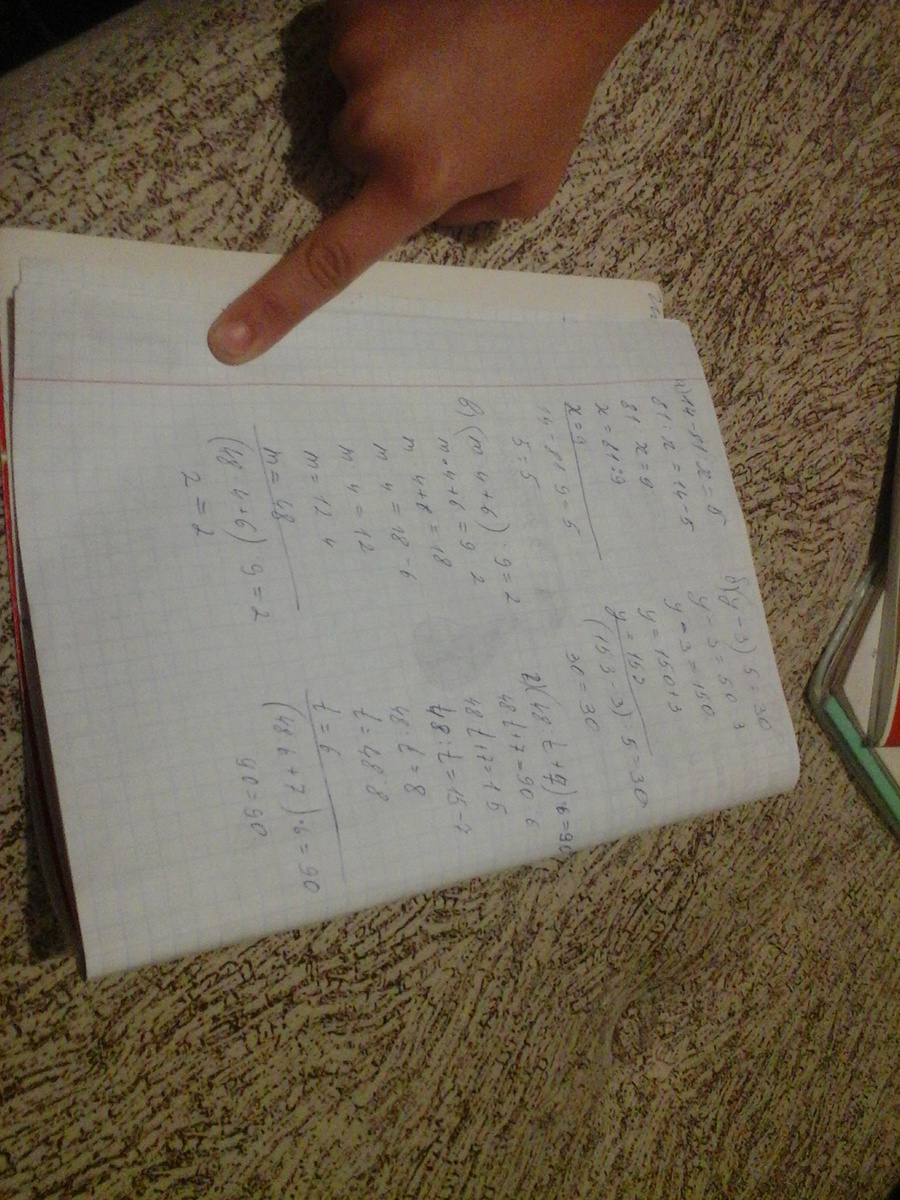 а) 14-81:x=5
81:x=14-5
81:x=9
x=81:9
x=9
14-81:9=5
5=5
б) (y-3):5=30
y-3=30·5
y-3=150
y=150+3
y=153
(153-3):5=30
30=30
в) (m:4+6):9=2
m:4+6=9·2
m:4+6=18
m:4=18-6
m:4=12
m=12·4
m=48
(48:4+6):9=2
2=2
г) (48:t+7)·6=90
48:t+7=90:6
48:t+7=15
48:t=15-7
48:t=8
t=48:8
t=6
(48:6+7)·6=90
90=90